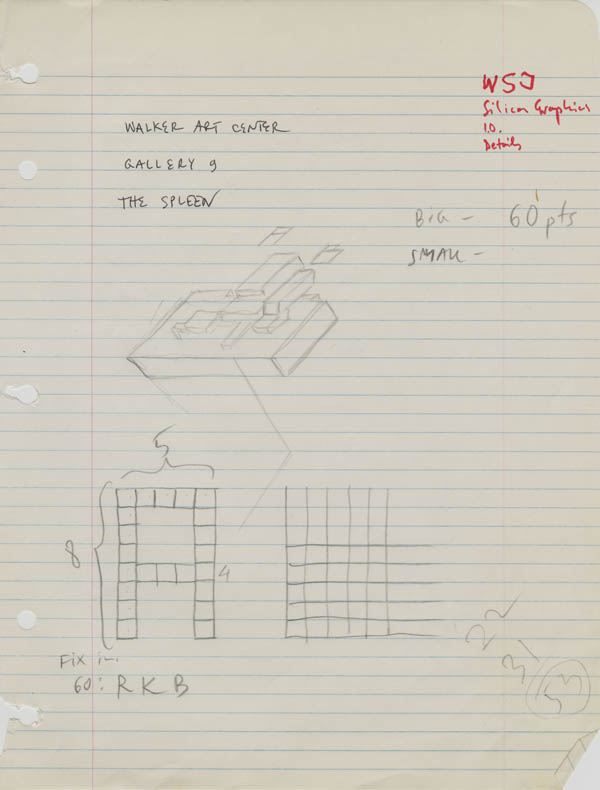 WSJ
Silicon Graphics
I.O.
Details
WALKER ART CENTER
GALLERY 9
THE SPLEEN
BIG - 60 pts
SMALL -
5
8
4
22
31
53
FIX in.
60: R K B